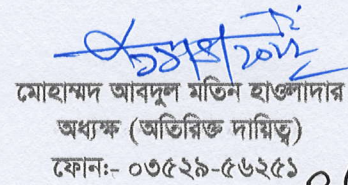 মোহাম্মদ আবদুল মতিন হাওলাদার
অধ্যক্ষ (অতিরিক্ত দায়িত্ব)
ফোন:- ০৩৫২৯-৫৬২৫১